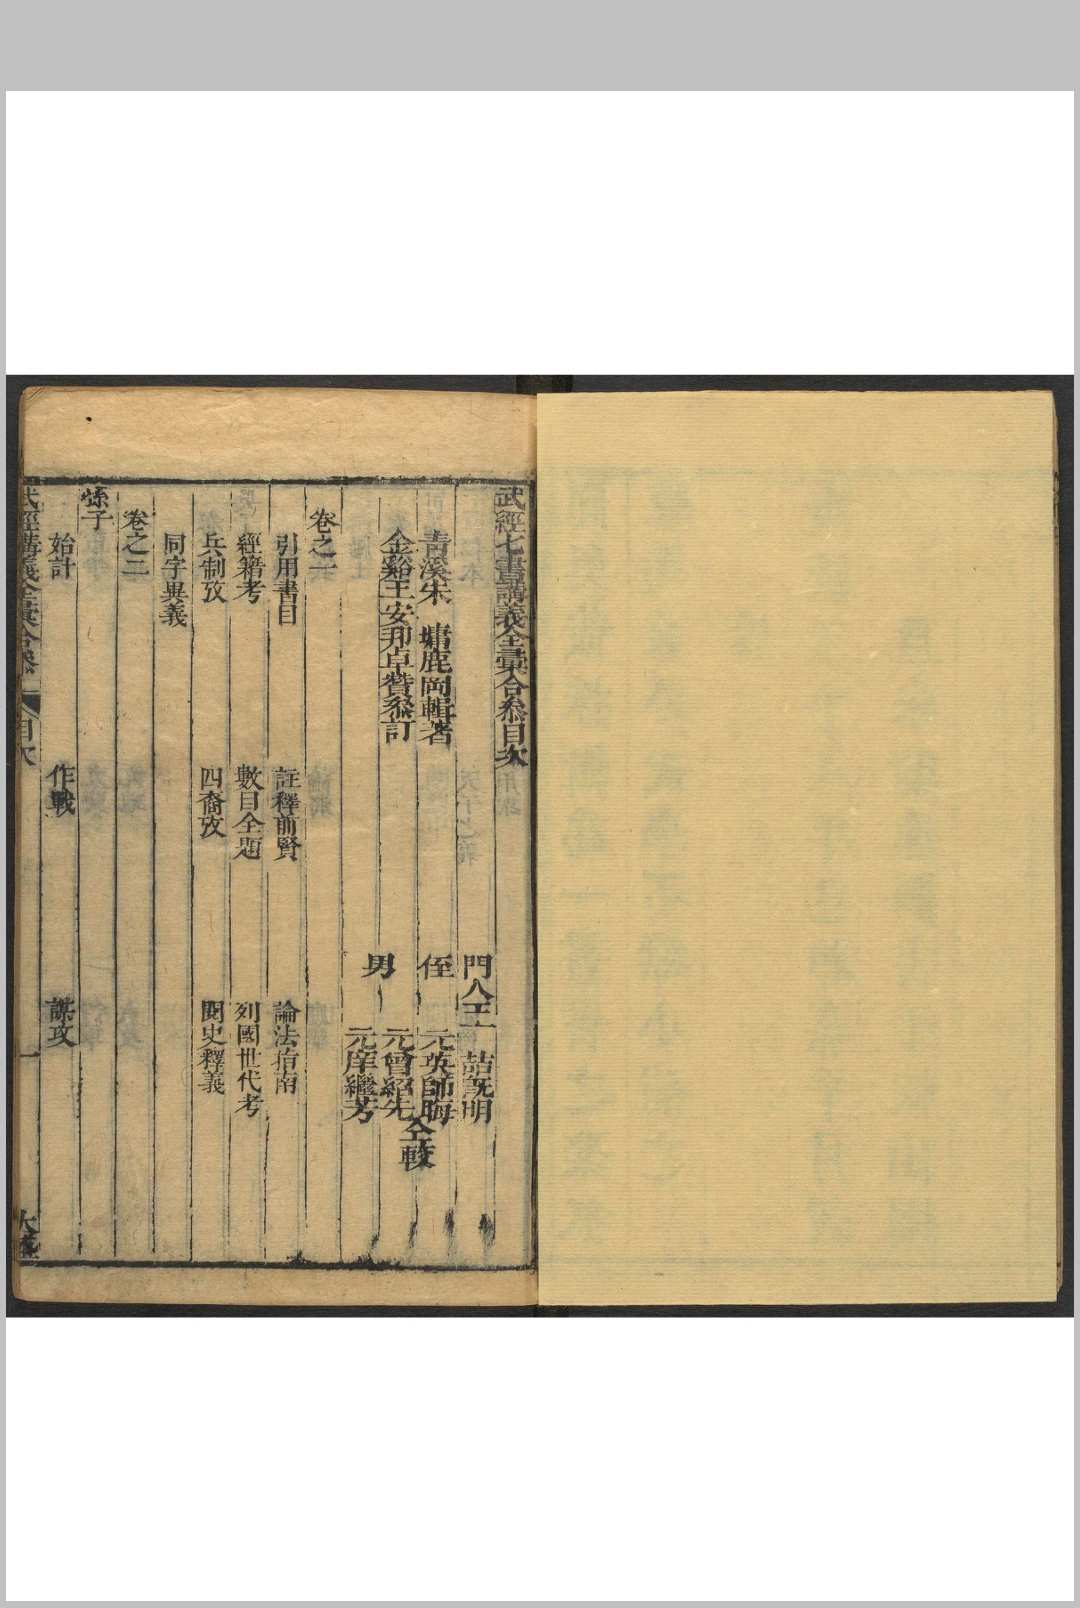 武經七書講義全彙合叅目次
門人王 喆旣明
青溪朱 墉鹿岡輯著 侄 元英師晦
金谿王安邦卓贊叅訂 男 元曾紹先 仝較
元庠繼芳
卷之一
引用書目 註釋前賢 論法指南
經籍考 數目全題 列國世代考
兵制攷 四裔攷 閱史釋義
同字異義
卷之二
孫子
始計 作戰 謀攻
武經講義全彙合叅 目次 一